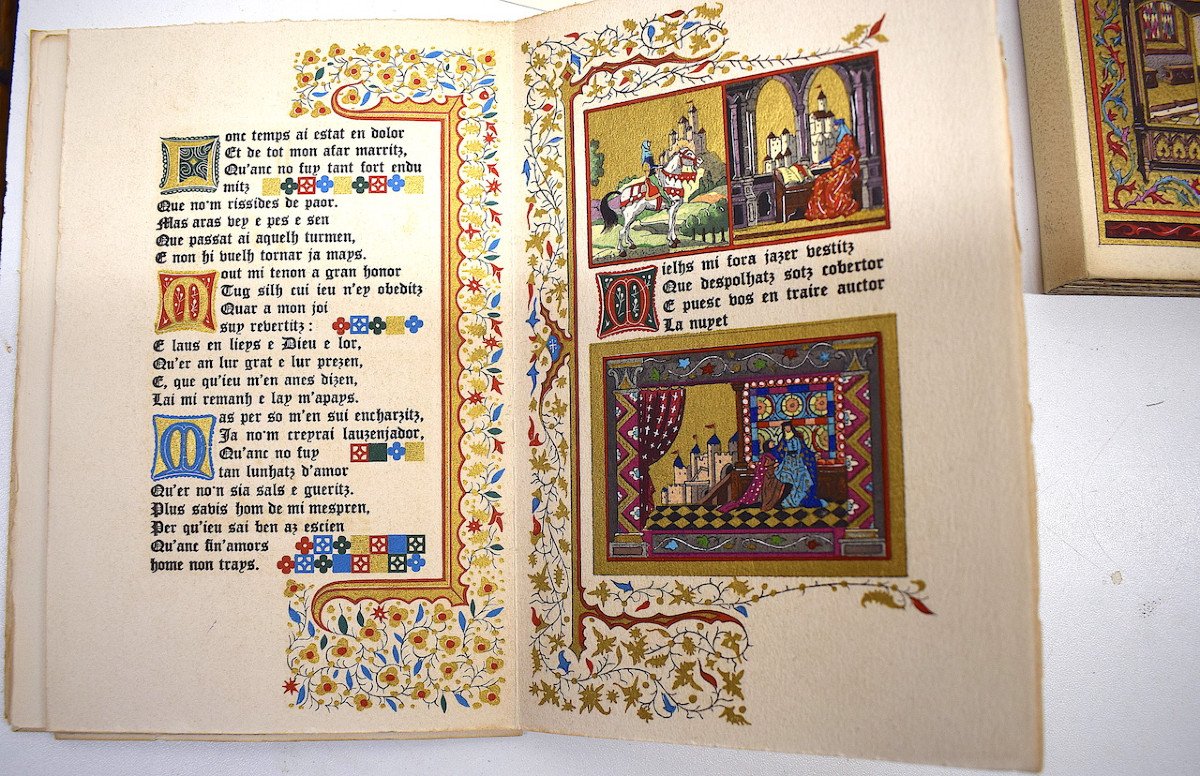 Lonc temps ai estat en dolor
Et de tot mon afar marritz,
Qu'anc no fuy tant fort endu
mitz
Que no·m rissides de paor.
Mas aras vey e pes e sen
Que passat ai aquelh turmen,
E non hi vuelh tornar ja mays.
Mout mi tenon a gran honor
Tug silh cui ieu n'ey obeditz
Quar a mon joi
suy revertitz :
E laus en lieys e Dieu e lor,
Qu'er an lur grat e lur prezen,
E, que qu'ieu m'en anes dizen,
Lai mi remanh e lay m'apays.
Mas per so m'en sui encharzitz,
Ja no·m creyrai lauzenjador,
Qu'anc no fuy
tan lunhatz d'amor
Qu'er no·n sia sals e gueritz.
Plus savis hom de mi mespren,
Per qu'ieu sai ben az escien
Qu'anc fin'amors
home non trays.
Mielhs mi fora jazer vestitz
Que despolhatz sotz cobertor
E puesc vos en traire auctor
La nuyet